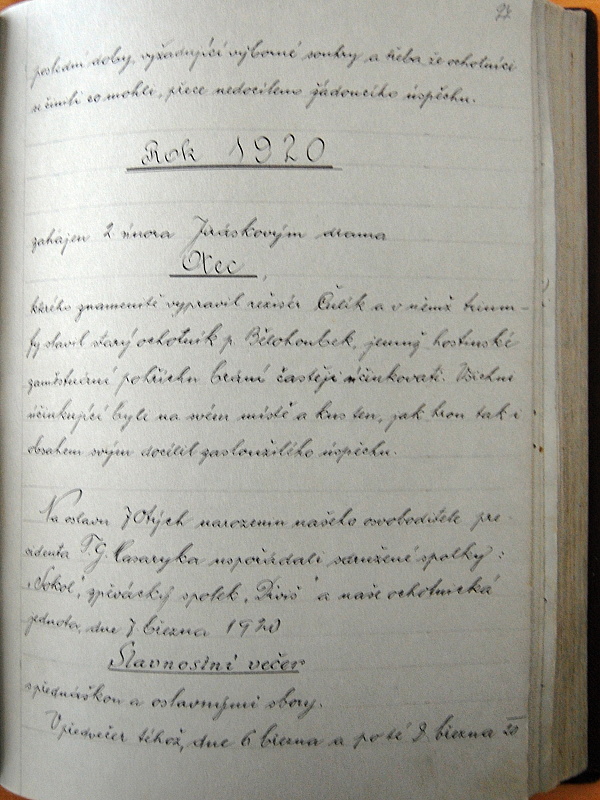 poslední doby, vyžadující výborné souhry a třeba že ochotníci
se činili co mohli, přece nedocíleno žádoucího úspěchu.
Rok 1920
zahájen 2 února Jiráskovým drama
Otec,
kterého znamenitě vypravil režisér Čulík a v němž trium-
fy slavil starý ochotník p. Bělohoubek, jemuž hostinské
zaměstnání pohříchu brání častěji účinkovati. Všichni
účinkující byli na svém místě a kus ten, jak hrou tak i
obsahem svým docílil zasloužilého úspěchu.
Na oslavu 70tých narozenin našeho osvoboditele pre-
sidenta T. G. Masaryka uspořádali sdružené spolky:
"Sokol", zpěvácký spolek "Diviš" a naše ochotnická
jednota, dne 7 března 1920
Slavnostní večer
s přednáškou a oslavnými sbory.
V předvečer téhož, dne 6 března a po té 8. března 20